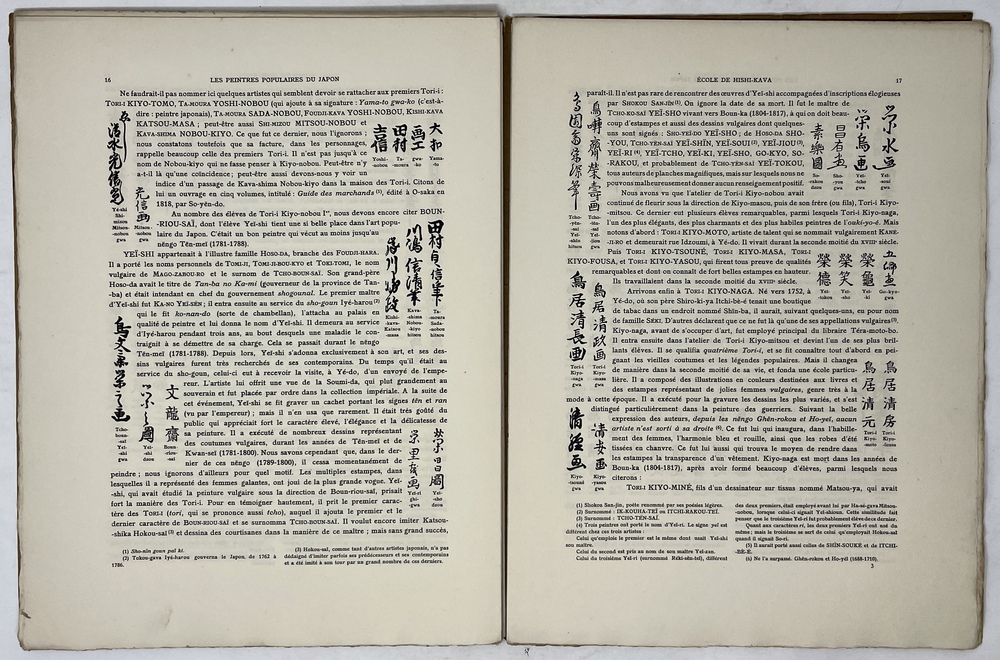 16
LES PEINTRES POPULAIRES DU JAPON
Ne faudrait-il pas nommer ici quelques artistes qui semblent devoir se rattacher aux premiers Tori-i :
TORI-I KIYO-TOMO, TA-MOURA YOSHI-NOBOU (qui ajoute à sa signature : Yama-to gwa-ko (c'est-à-
dire : peintre japonais), TA-MOURA SADA-NOBOU, FOUDJI-KAVA YOSHI-NOBOU, KISHI-KAVA
KATSOU-MASA ; peut-être aussi SHI-MIZOU MITSOU-NOBOU et
KAVA-SHIMA NOBOU-KIYO. Ce que fut ce dernier, nous l'ignorons ;
nous constatons toutefois que sa facture, dans les personnages,
rappelle beaucoup celle des premiers Tori-i. Il n'est pas jusqu'à ce
nom de Nobou-kiyo qui ne fasse penser à Kiyo-nobou. Peut-être n'y
a-t-il là qu'une coïncidence ; peut-être aussi devons-nous y voir un
indice d'un passage de Kava-shima Nobou-kiyo dans la maison des Tori-i. Citons de
lui un ouvrage en cinq volumes, intitulé : Guide des marchands (1), édité à O-saka en
1818, par So-yèn-do.
Au nombre des élèves de Tori-i Kiyo-nobou Ier, nous devons encore citer BOUN-
-RIOU-SAÏ, dont l'élève Yeï-shi tient une si belle place dans l'art popu-
laire du Japon. C'était un bon peintre qui vécut au moins jusqu'au
nèngo Tèn-meï (1781-1788).
YEÏ-SHI appartenait à l'illustre famille HOSO-DA, branche des FOUDJI-HARA.
Il a porté les noms personnels de TOMI-JI, TOMI-JI-BOU-KYO et TOKI-TOMI, le nom
vulgaire de MAGO-ZABOU-RO et le surnom de TCHO-BOUN-SAÏ. Son grand-père
Hoso-da avait le titre de Tan-ba no Ka-mi (gouverneur de la province de Tan-
-ba) et était intendant en chef du gouvernement shogounal. Le premier maître
d'Yeï-shi fut KA-NO YEI-SEN ; il entra ensuite au service du sho-goun Iyé-harou (2)
qui le fit ko-nan-do (sorte de chambellan), l'attacha au palais en
qualité de peintre et lui donna le nom d'Yeï-shi. Il demeura au service
d'Iyé-harou pendant trois ans, au bout desquels une maladie le con-
traignit à se démettre de sa charge. Cela se passait durant le nèngo
Tèn-meï (1781-1788). Depuis lors, Yeï-shi s'adonna exclusivement à son art, et ses des-
sins vulgaires furent très recherchés de ses contemporains. Du temps qu'il était au
service du sho-goun, celui-ci eut à recevoir la visite, à Yé-do, d'un envoyé de l'empe-
reur. L'artiste lui offrit une vue de la Soumi-da, qui plut grandement au
souverain et fut placée par ordre dans la collection impériale. A la suite de
cet événement, Yeï-shi se fit graver un cachet portant les signes tèn et ran
(vu par l'empereur) ; mais il n'en usa que rarement. Il était très goûté du
public qui appréciait fort le caractère élevé, l'élégance et la délicatesse de
sa peinture. Il a exécuté de nombreux dessins représentant
des coutumes vulgaires, durant les années de Tèn-meï et de
Kwan-seï (1781-1800). Nous savons cependant que, dans le der-
nier de ces nèngo (1789-1800), il cessa momentanément de
peindre ; nous ignorons d'ailleurs pour quel motif. Les multiples estampes, dans
lesquelles il a représenté des femmes galantes, ont joui de la plus grande vogue. Yeï-
-shi, qui avait étudié la peinture vulgaire sous la direction de Boun-riou-saï, prisait
fort la manière des Tori-i. Pour en témoigner hautement, il prit le premier carac-
tère des TORI-I (tori, qui se prononce aussi tcho), auquel il ajouta le premier et le
dernier caractère de BOUN-RIOU-SAÏ et se surnomma TCHO-BOUN-SAÏ. Il voulut encore imiter Katsou-
-shika Hokou-saï (3) et dessina des courtisanes dans la manière de ce maître ; mais sans grand succès,
大和
画工
田村
吉信
Yama-
-to
gwa-
-ko
Ta-
-moura
Yoshi-
-nobou
清水光信筆
光信画
Yé-shi
Shi-
mizou
Mitsou-
-nobou
gwa
Mitsou-
-nobou
gwa
川嶋信清筆
Ta-
-moura
Sada-
-nobou
hitsou
Kava-
-shima
Nobou-
-kiyo
hitsou
Kishi-
-kava
Katsou
-masa
hitsou
鳥文斎栄之画
栄之圖
文龍齋
Tcho-
boun-
-saï
Yeï-
-shi
gwa
Yeï-
-shi
dzou
Boun-
-riou-
-saï
栄里画
栄昌圖
Yeï-ri
gwa
Yeï-
-sho
dzou
(1) Sho-nin goun pal ki.
(2) Tokou-gava Iyé-harou gouverna le Japon, de 1762 à
1786.
(3) Hokou-saï, comme tant d'autres artistes japonais, n'a pas
dédaigné d'imiter parfois ses prédécesseurs et ses contemporains
et a été imité à son tour par un grand nombre de ces derniers.
ÉCOLE DE HISHI-KAVA
17
paraît-il. Il n'est pas rare de rencontrer des œuvres d'Yeï-shi accompagnées d'inscriptions élogieuses
par SHOKOU SAN-JÏN (1). On ignore la date de sa mort. Il fut le maître de
TCHO-YÈN-SAÏ YEÏ-SHO vivant vers Boun-ka (1804-1817), à qui on doit beau-
coup d'estampes et aussi des dessins vulgaires dont quelques-
uns sont signés : SHO-YEI-DO YEÏ-SHO ; de HOSO-DA SHO-
-YOU, TCHO-KEN-SAÏ YEÏ-SHÏN, YEÏ-SOUI (2), YEÏ-JIOU (3),
YEÏ-RI (4), YEÏ-TCHO, YEÏ-KI, YEÏ-SHO, GO-KYO, SO-
-RAKOU, et probablement de TCHO-YÈN-SAÏ YEÏ-TOKOU,
tous auteurs de planches magnifiques, mais sur lesquels nous ne
pouvons malheureusement donner aucun renseignement positif.
Nous avons vu que l'atelier de Tori-i Kiyo-nobou avait
continué de fleurir sous la direction de Kiyo-masou, puis de son frère (ou fils), Tori-i Kiyo-
-mitsou. Ce dernier eut plusieurs élèves remarquables, parmi lesquels Tori-i Kiyo-naga,
l'un des plus élégants, des plus charmants et des plus habiles peintres de l'ouki-yo-é. Mais
notons d'abord : TORI-I KIYO-MOTO, artiste de talent qui se nommait vulgairement KANE-
-JI-RO et demeurait rue Idzoumi, à Yé-do. Il vivait durant la seconde moitié du XVIIIe siècle.
Puis TORI-I KIYO-TSOUNÉ, TORI-I KIYO-HASA, TORI-I
KIYO-FOUSA, et TORI-I KIYO-YASOU, qui firent tous preuve de qualités
remarquables et dont on connaît de fort belles estampes en hauteur.
Ils travaillaient dans la seconde moitié du XVIIIe siècle.
Arrivons enfin à TORI-I KIYO-NAGA. Né vers 1752, à
Yé-do, où son père Shiro-ki-ya Itchi-bé-é tenait une boutique
de tabac dans un endroit nommé Shïn-ba, il aurait, suivant quelques-uns, eu pour nom
de famille SÉKI. D'autres déclarent que ce ne fut là qu'une de ses appellations vulgaires (5).
Kiyo-naga, avant de s'occuper d'art, fut employé principal du libraire Téra-moto-bo.
Il entra ensuite dans l'atelier de Tori-i Kiyo-mitsou et devint l'un de ses plus bril-
lants élèves. Il se qualifia quatrième Tori-i, et se fit connaître tout d'abord en pei-
gnant les vieilles coutumes et les légendes populaires. Mais il changea
de manière dans la seconde moitié de sa vie, et fonda une école particu-
lière. Il a composé des illustrations en couleurs destinées aux livres et
des estampes représentant de jolies femmes vulgaires, genre très à la
mode à cette époque. Il a exécuté pour la gravure les dessins les plus variés, et s'est
distingué particulièrement dans la peinture des guerriers. Suivant la belle
expression des auteurs, depuis les nèngo Ghèn-rokou et Ho-yeï, aucun
artiste n'est sorti à sa droite (6). Ce fut lui qui inaugura, dans l'habille-
ment des femmes, l'harmonie bleu et rouille, ainsi que les robes d'été
tissées en chanvre. Ce fut lui aussi qui trouva le moyen de rendre dans
les estampes la transparence d'un vêtement. Kiyo-naga est mort dans les années de
Boun-ka (1804-1817), après avoir formé beaucoup d'élèves, parmi lesquels nous
citerons :
TORI-I KIYO-MINÉ, fils d'un dessinateur sur tissus nommé Matsou-ya, qui avait
栄水画
栄烏画
昌有画
素樂圖
Yeï-
-soui
gwa
Yeï-
-ou
gwa
Sho-
-you
gwa
So-
-rakou
dzou
Tcho-
-yèn-
-saï
Yeï-
-shïn
hitsou
五郷画
榮亀
榮笑
榮徳
Go-kyo
gwa
Yeï-
-ki
Yeï-
-sho
Yeï-
-tokou
鳥居清長画
鳥居清政画
Tori-i
Kiyo-
-naga
gwa
Tori-i
Kiyo-
-masa
gwa
鳥居清房
鳥居清元
Tori-i
Kiyo-
-fousa
Tori-i
Kiyo-
-moto
清経画
清安画
Kiyo-
-tsouné
gwa
Kiyo-
-yasou
gwa
(1) Shokou San-jïn, poète renommé par ses poésies légères.
(2) Surnommé : IK-KOUHA-TEÏ ou ITCHI-RAKOU-TEÏ.
(3) Surnommé : TCHO-TÈN-SAÏ.
(4) Trois peintres ont porté le nom d'Yeï-ri. Le signe yeï est
différent chez ces trois artistes :
Celui qu'emploie le premier est le même dont usait Yeï-shi
son maître.
Celui du second est pris au nom de son maître Yeï-zan.
Celui du troisième Yeï-ri (surnommé Réki-sèn-teï), différent
des deux premiers, était employé avant lui par Ha-sé-gava Mitsou-
-nobou, lorsque celui-ci signait Yeï-shoun. Cette similitude fait
penser que le troisième Yeï-ri fut probablement élève de ce dernier.
Quant aux caractères ri, les deux premiers Yeï-ri ont usé du
même ; mais le troisième se sert de celui qu'employait Hokou-saï
quand il signait So-ri.
(5) Il aurait porté aussi celles de SHÏN-SOUKÉ et de ITCHI-
-BÉ-É.
(6) Ne l'a surpassé. Ghèn-rokou et Ho-yeï (1688-1710).
3